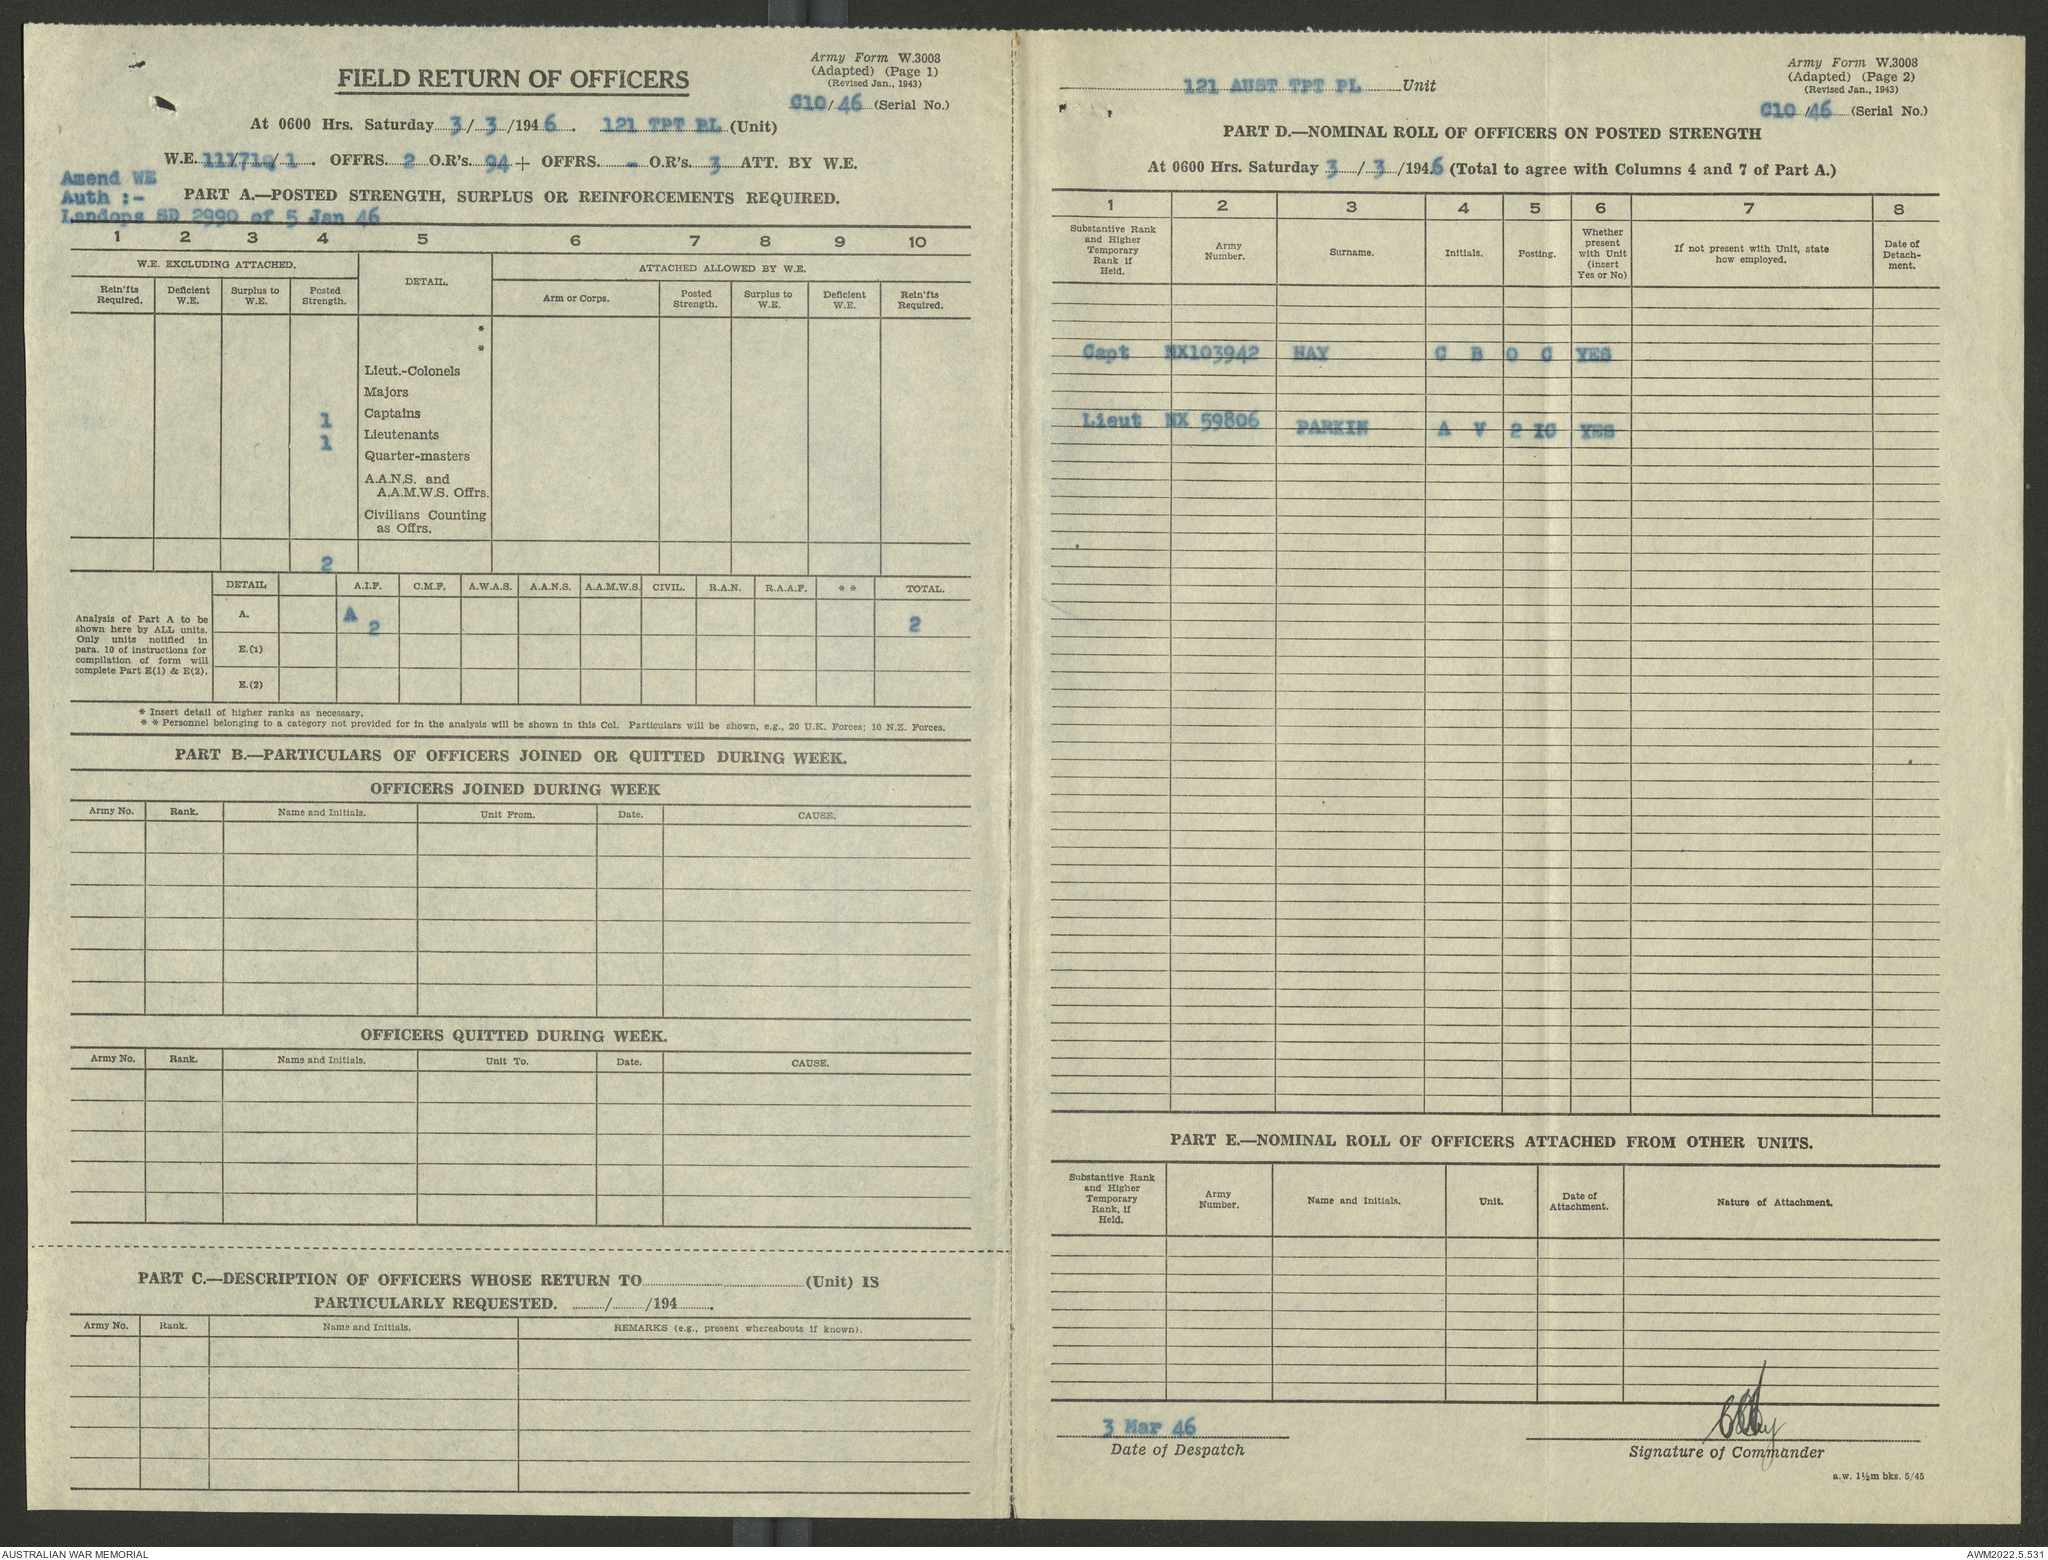 Army Form W.3008
(Adapted) (Page 1)
(Revised Jan., 1943)
FIELD RETURN OF OFFICERS
C10/46 (Serial No.)
At 0600 Hrs. Saturday 3/3/1946. 121 TPT PL (Unit)
OFFRS. 2 O.R's. 94 + OFFRS. - O.R's. 3 ATT. BY W.E.
Amend WE
Auth :-
Landops SD 2990 of 5 Jan 46
PART A.—POSTED STRENGTH, SURPLUS OR REINFORCEMENTS REQUIRED.
1 2 3 4 5 6 7 8 9 10
W.E. EXCLUDING ATTACHED. DETAIL. ATTACHED ALLOWED BY W.E.
Rein'fts Required. Deficient W.E. Surplus to W.E. Posted Strength. Arm or Corps. Posted Strength. Surplus to W.E. Deficient W.E. Rein'fts Required.
*
*
Lieut.-Colonels
Majors
1 Captains
1 Lieutenants
Quarter-masters
A.A.N.S. and
A.A.M.W.S. Offrs.
Civilians Counting
as Offrs.
2
DETAIL A.I.F. C.M.F. A.W.A.S. A.A.N.S. A.A.M.W.S. CIVIL. R.A.N. R.A.A.F. * * TOTAL.
Analysis of Part A to be
shown here by ALL units.
Only units notified in
para. 10 of instructions for
compilation of form will
complete Part E(1) & E(2).
A. A 2 2
E.(1)
E.(2)
* Insert detail of higher ranks as necessary.
* * Personnel belonging to a category not provided for in the analysis will be shown in this Col. Particulars will be shown, e.g., 20 U.K. Forces; 10 N.Z. Forces.
PART B.—PARTICULARS OF OFFICERS JOINED OR QUITTED DURING WEEK.
OFFICERS JOINED DURING WEEK
Army No. Rank. Name and Initials. Unit From. Date. CAUSE.
OFFICERS QUITTED DURING WEEK.
Army No. Rank. Name and Initials. Unit To. Date. CAUSE.
PART C.—DESCRIPTION OF OFFICERS WHOSE RETURN TO (Unit) IS
PARTICULARLY REQUESTED. / /194 .
Army No. Rank. Name and Initials. REMARKS (e.g., present whereabouts if known).
Army Form W.3008
(Adapted) (Page 2)
(Revised Jan., 1943)
121 AUST TPT PL Unit
C10/46 (Serial No.)
PART D.—NOMINAL ROLL OF OFFICERS ON POSTED STRENGTH
At 0600 Hrs. Saturday 3/3/1946 (Total to agree with Columns 4 and 7 of Part A.)
1 2 3 4 5 6 7 8
Substantive Rank and Higher Temporary Rank if Held. Army Number. Surname. Initials. Posting. Whether present with Unit (insert Yes or No) If not present with Unit, state how employed. Date of Detach- ment.
Capt NX103942 HAY C B O C YES
Lieut NX 59806 PARKIN A V 2 IC YES
PART E.—NOMINAL ROLL OF OFFICERS ATTACHED FROM OTHER UNITS.
Substantive Rank and Higher Temporary Rank, if Held. Army Number. Name and Initials. Unit. Date of Attachment. Nature of Attachment.
3 Mar 46
Date of Despatch
Signature of Commander
a.w. 1½m bks. 5/45
AUSTRALIAN WAR MEMORIAL
AWM2022.5.531